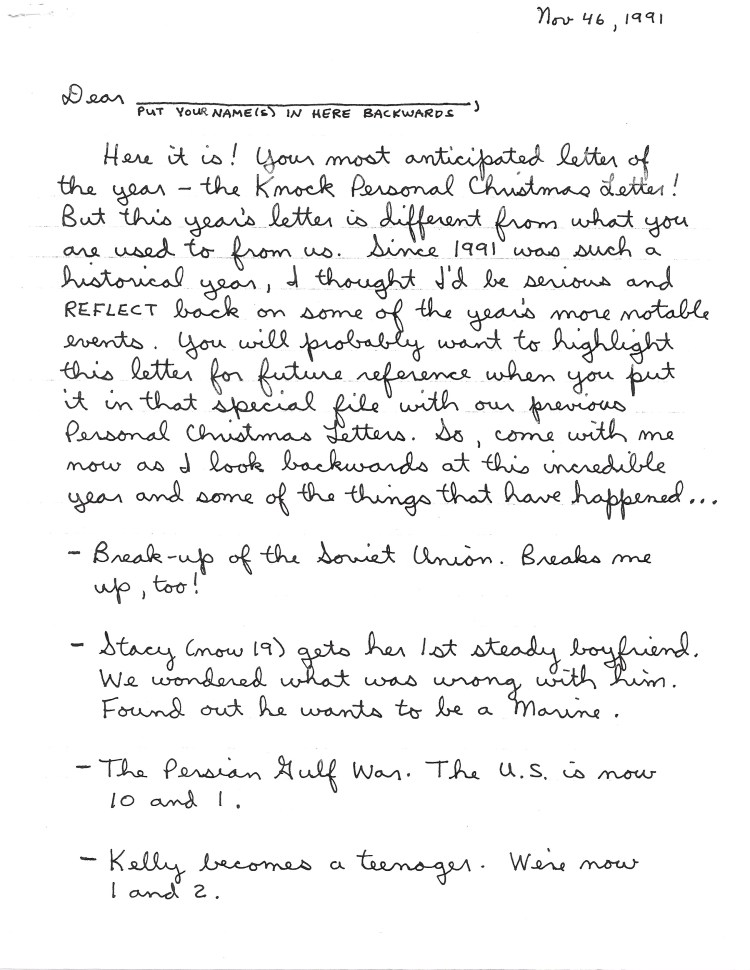 Nov 46, 1991
Dear ____________________,
PUT YOUR NAME(S) IN HERE BACKWARDS
Here it is! Your most anticipated letter of
the year – the Knock Personal Christmas Letter!
But this year's letter is different from what you
are used to from us. Since 1991 was such a
historical year, I thought I'd be serious and
REFLECT back on some of the year's more notable
events. You will probably want to highlight
this letter for future reference when you put
it in that special file with our previous
Personal Christmas Letters. So, come with me
now as I look backwards at this incredible
year and some of the things that have happened...
– Break-up of the Soviet Union. Breaks me
up, too!
– Stacy (now 19) gets her 1st steady boyfriend.
We wondered what was wrong with him.
Found out he wants to be a Marine.
– The Persian Gulf War. The U.S. is now
10 and 1.
– Kelly becomes a teenager. We're now
1 and 2.